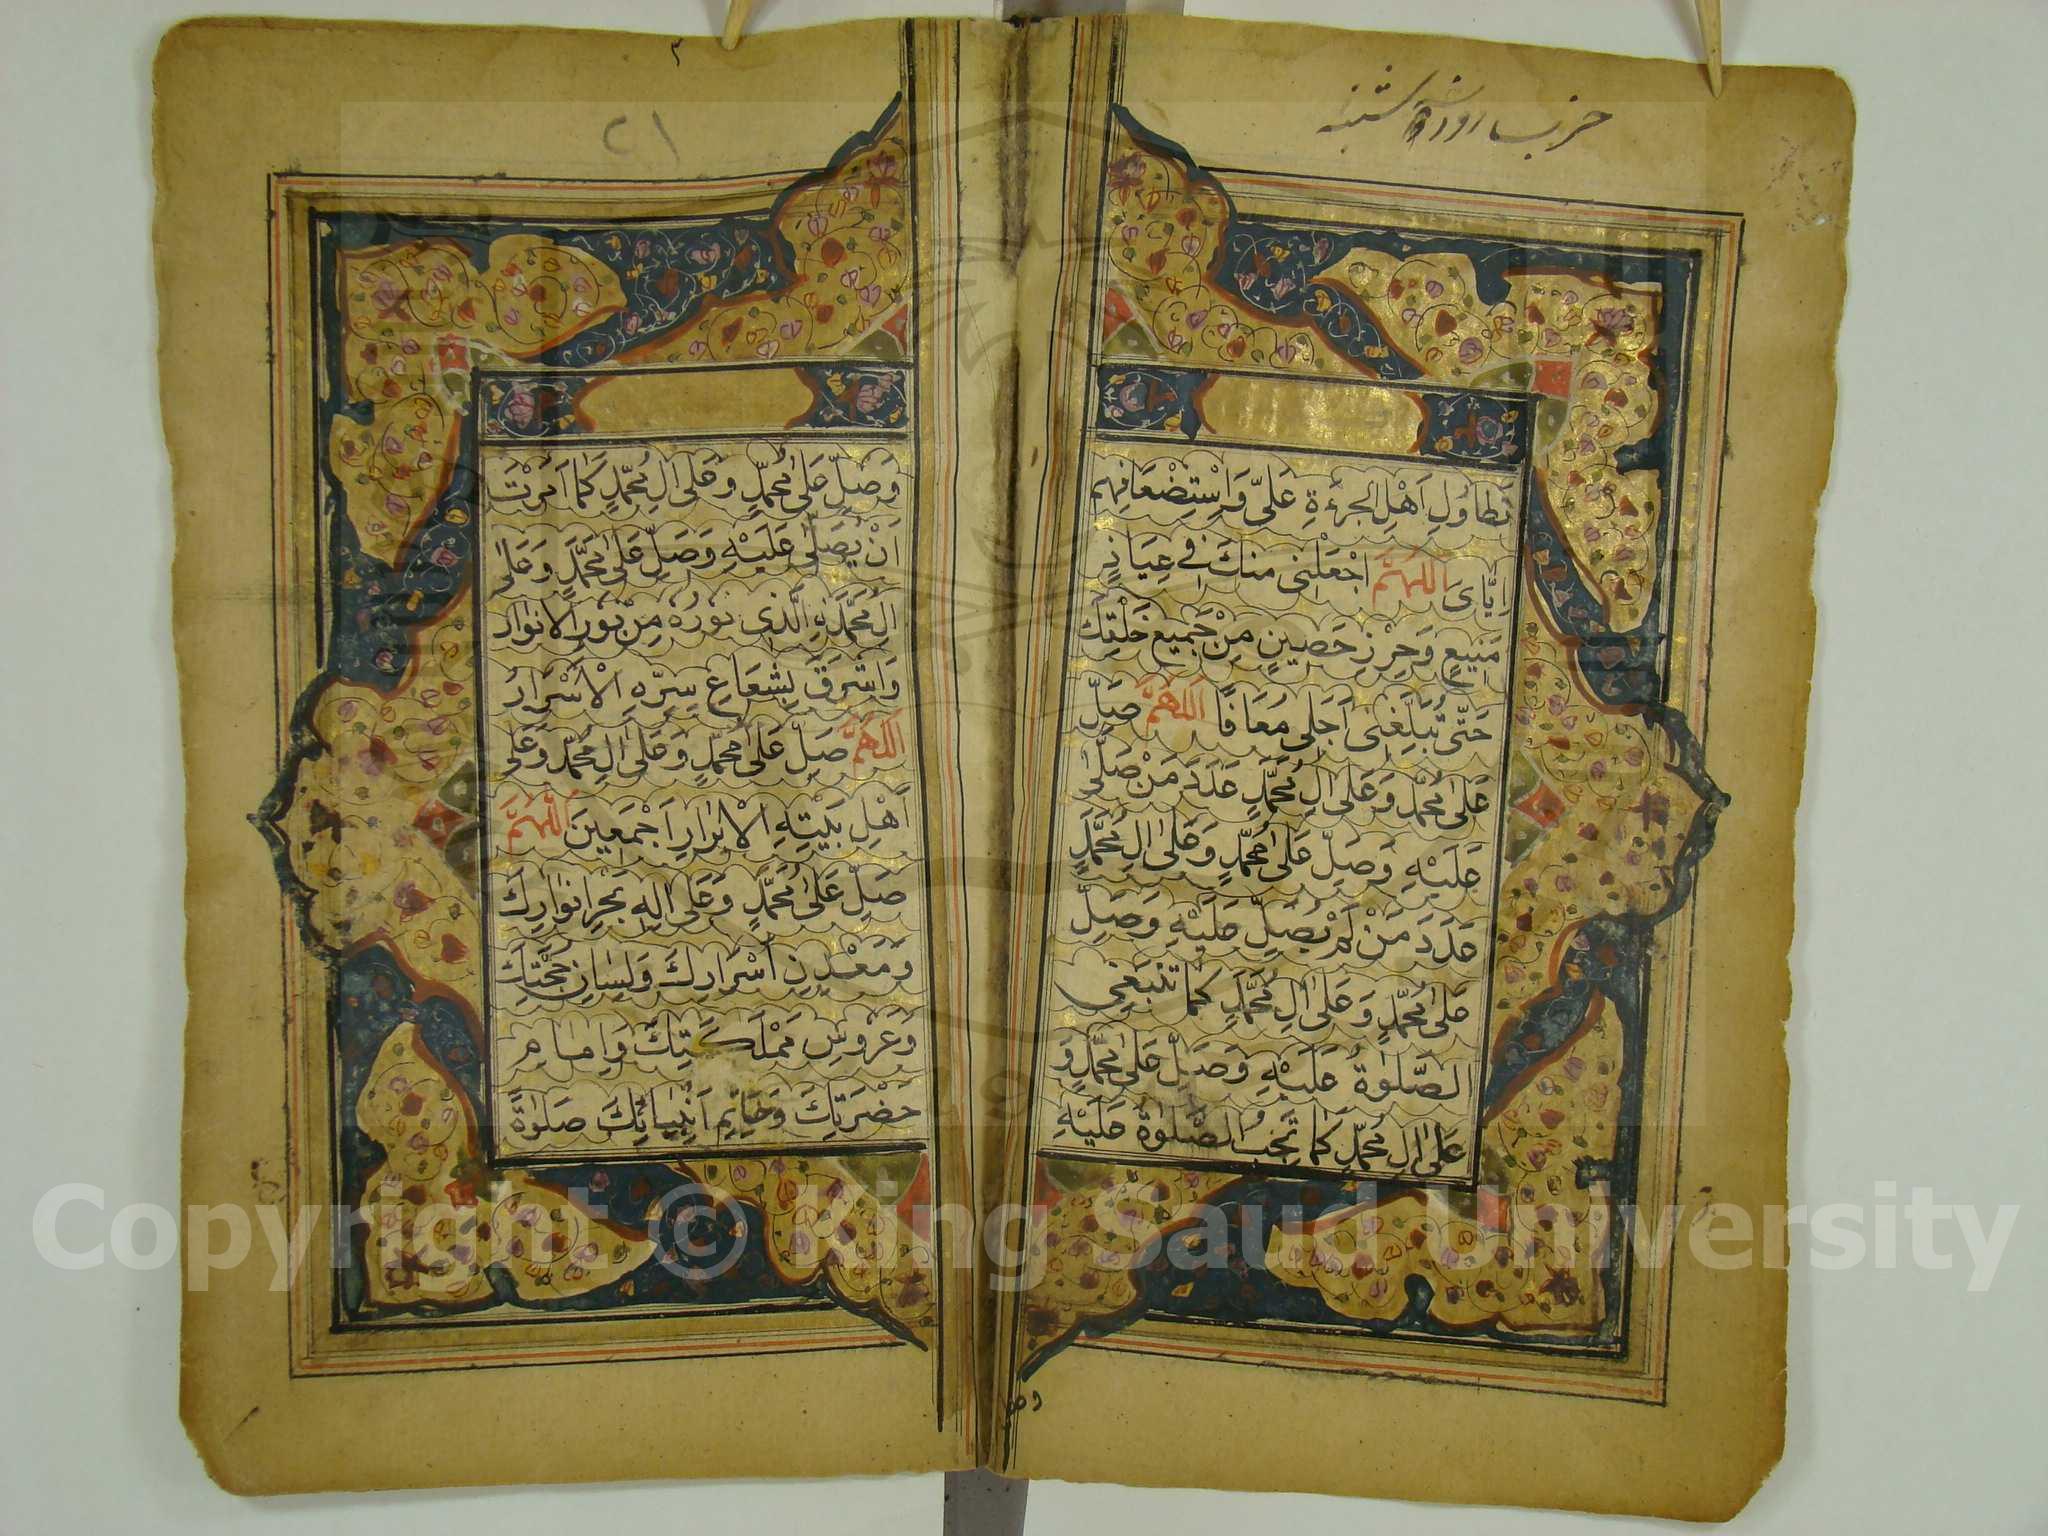 حزب روز شنبه
تَطَاوُلِ اَهْلِ الجُرْءَةِ عَلَىَّ وَاسْتِضْعَافِهِمْ
اِيَّاىَ اَللّٰهُمَّ اجْعَلْنِى مِنْكَ فِى عِيَاذٍ
مَنِيعٍ وَحِرْزٍ حَصِينٍ مِنْ جَمِيعِ خَلْقِكَ
حَتّٰى تُبَلِّغَنِى اَجَلِى مُعَافًا اَللّٰهُمَّ صَلِّ
عَلٰى مُحَمَّدٍ وَعَلٰى اٰلِ مُحَمَّدٍ عَدَدَ مَنْ صَلّٰى
عَلَيْهِ وَصَلِّ عَلٰى مُحَمَّدٍ وَعَلٰى اٰلِ مُحَمَّدٍ
عَدَدَ مَنْ لَمْ يُصَلِّ عَلَيْهِ وَصَلِّ
عَلٰى مُحَمَّدٍ وَعَلٰى اٰلِ مُحَمَّدٍ كَمَا تَنْبَغِى
الصَّلٰوةُ عَلَيْهِ وَصَلِّ عَلٰى مُحَمَّدٍ وَ
عَلٰى اٰلِ مُحَمَّدٍ كَمَا تَجِبُ الصَّلٰوةُ عَلَيْهِ
وصل
٢١
وَصَلِّ عَلٰى مُحَمَّدٍ وَعَلٰى اٰلِ مُحَمَّدٍ كَمَا اَمَرْتَ
اَنْ يُصَلّٰى عَلَيْهِ وَصَلِّ عَلٰى مُحَمَّدٍ وَعَلٰى
اٰلِ مُحَمَّدٍ الَّذِى نُورُهُ مِنْ نُورِ الْاَنْوَارِ
وَاَشْرَقَ بِشُعَاعِ سِرِّهِ الْاَسْرَارُ
اَللّٰهُمَّ صَلِّ عَلٰى مُحَمَّدٍ وَعَلٰى اٰلِ مُحَمَّدٍ وَعَلٰى
اَهْلِ بَيْتِهِ الْاَبْرَارِ اَجْمَعِينَ اَللّٰهُمَّ
صَلِّ عَلٰى مُحَمَّدٍ وَعَلٰى اٰلِهِ بَحْرِ اَنْوَارِكَ
وَمَعْدِنِ اَسْرَارِكَ وَلِسَانِ حُجَّتِكَ
وَعَرُوسِ مَمْلَكَتِكَ وَاِمَامِ
حَضْرَتِكَ وَخَاتِمِ اَنْبِيَائِكَ صَلٰوةً
Copyright © King Saud University